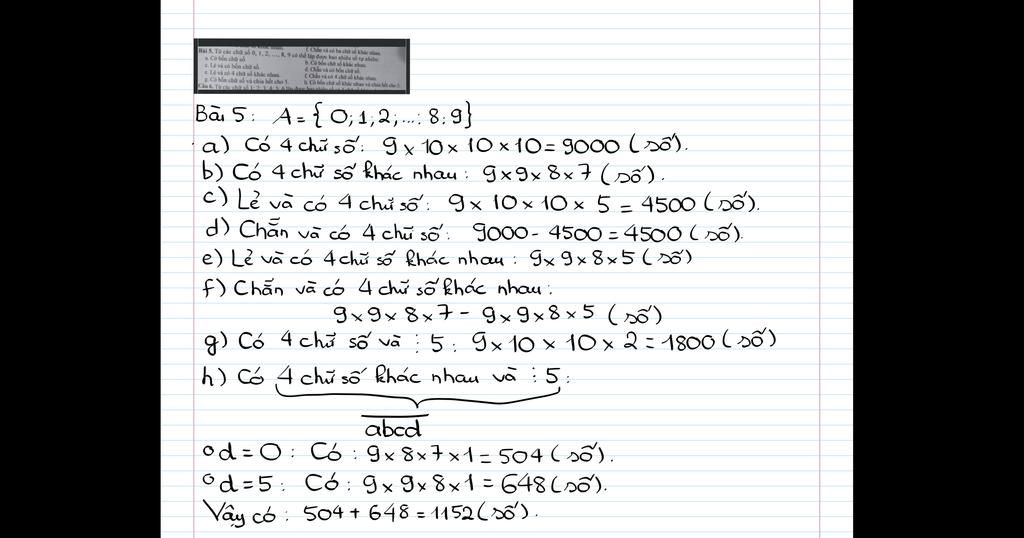 f. Chẵn và có ba chữ số khác nhau.
Bài 5. Từ các chữ số 0, 1, 2, ..., 8, 9 có thể lập được bao nhiêu số tự nhiên:
a. Có bốn chữ số.
b. Có bốn chữ số khác nhau.
c. Lẻ và có bốn chữ số.
d. Chẵn và có bốn chữ số.
e. Lẻ và có 4 chữ số khác nhau.
f. Chẵn và có 4 chữ số khác nhau.
g. Có bốn chữ số và chia hết cho 5.
h. Có bốn chữ số khác nhau và chia hết cho 5.
Bài 5: A = { 0; 1; 2; ...; 8; 9}
a) Có 4 chữ số: 9 x 10 x 10 x 10 = 9000 (số).
b) Có 4 chữ số khác nhau: 9 x 9 x 8 x 7 (số).
c) Lẻ và có 4 chữ số: 9 x 10 x 10 x 5 = 4500 (số).
d) Chẵn và có 4 chữ số: 9000 - 4500 = 4500 (số).
e) Lẻ và có 4 chữ số khác nhau: 9 x 9 x 8 x 5 (số)
f) Chẵn và có 4 chữ số khác nhau:
9 x 9 x 8 x 7 - 9 x 9 x 8 x 5 (số)
g) Có 4 chữ số và ⋮ 5: 9 x 10 x 10 x 2 = 1800 (số)
h) Có 4 chữ số khác nhau và ⋮ 5:
abcd
o d = 0: Có: 9 x 8 x 7 x 1 = 504 (số).
o d = 5: Có: 9 x 9 x 8 x 1 = 648 (số).
Vậy có: 504 + 648 = 1152 (số).